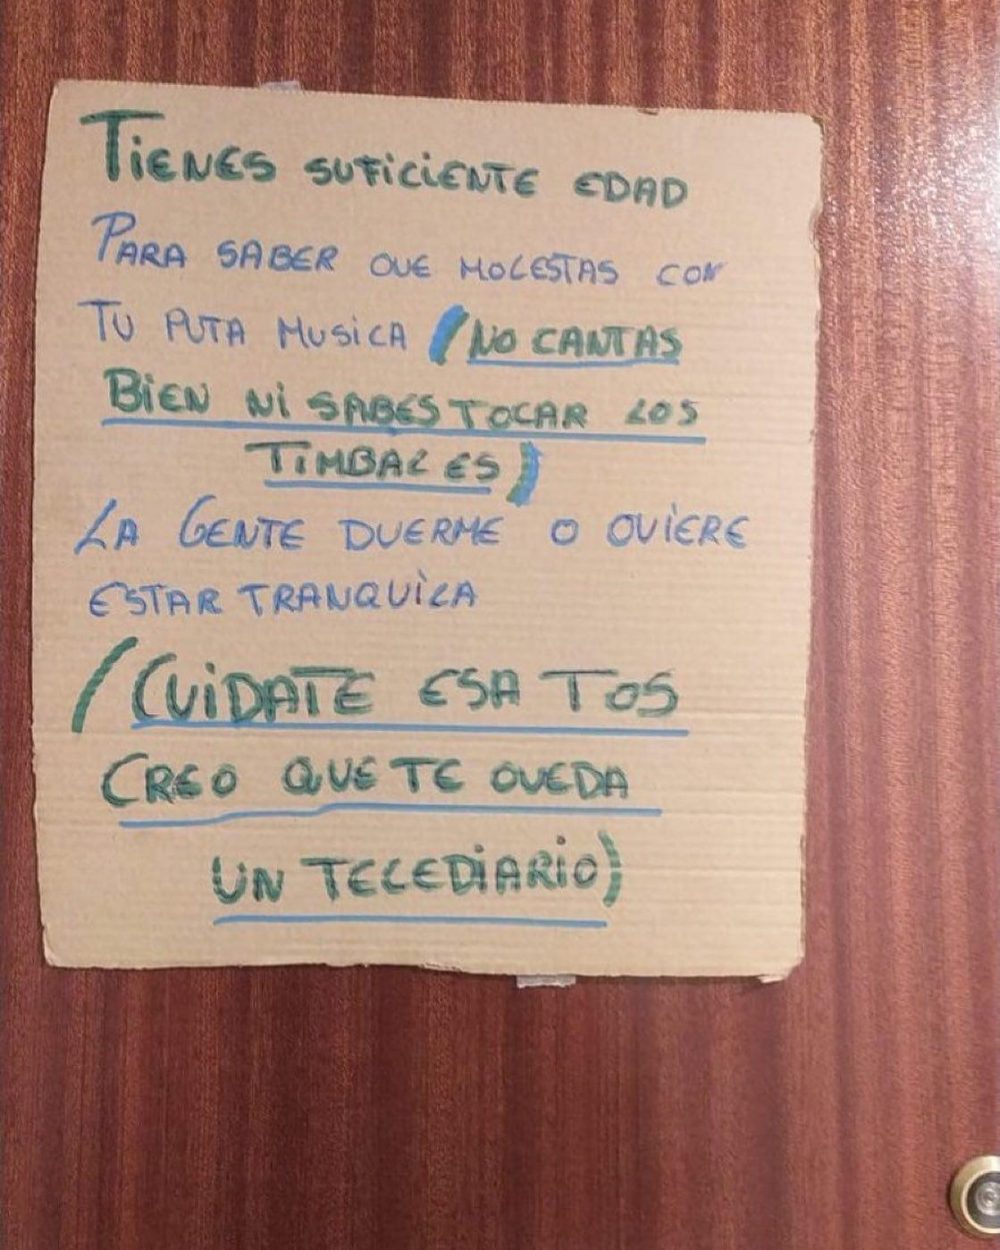 TiENES SUFiCiENTE EDAD
PARA SABER QUE MOLESTAS CON
TU PUTA MUSiCA (NO CANTAS
BiEN Ni SABES TOCAR LOS
TiMBALES)
LA GENTE DUERME O QUiERE
ESTAR TRANQUiLA
(CUiDATE ESA TOS
CREO QUE TE QUEDA
UN TELEDiARiO)